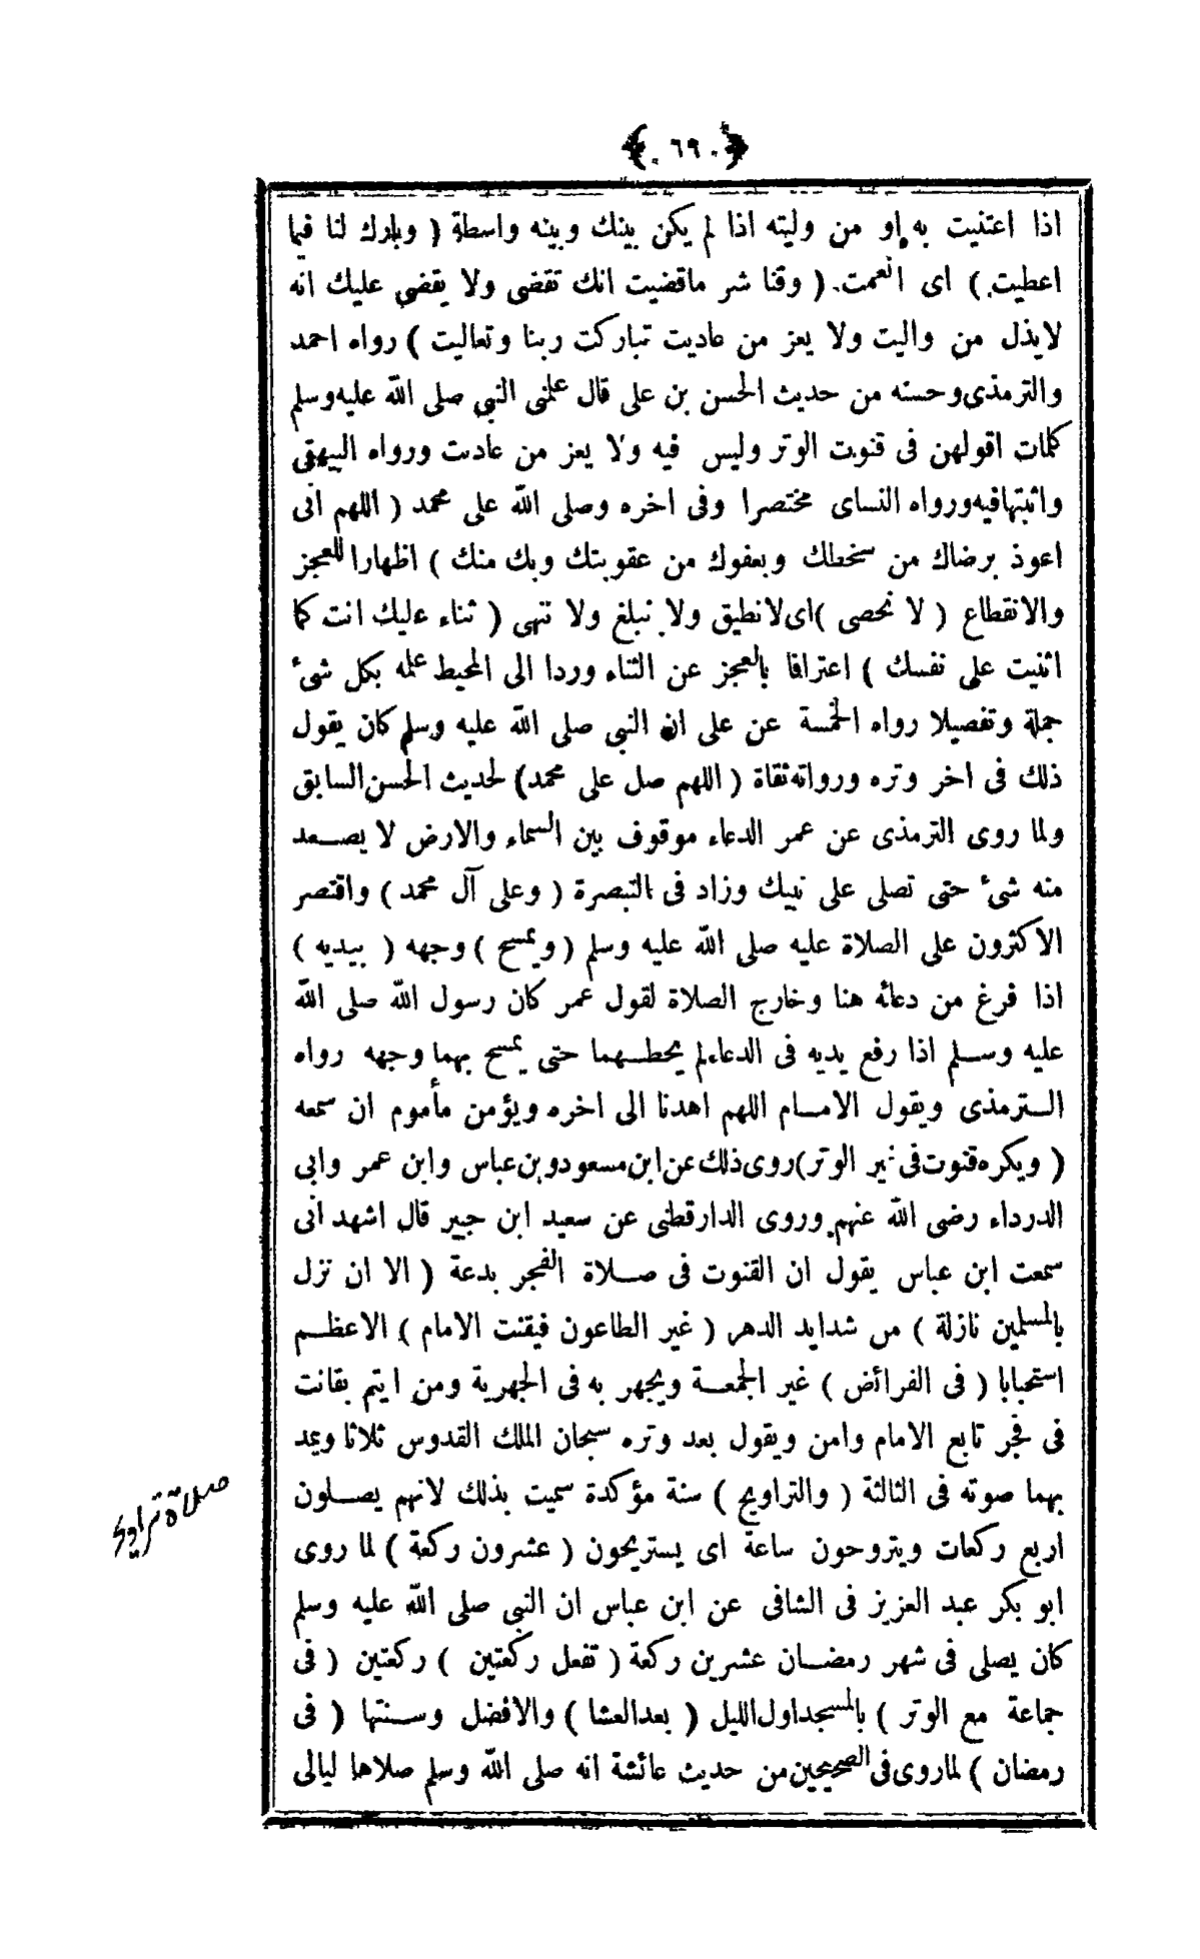 ﴿ ٦٩٠ ﴾
اذا اعتنيت به او من وليته اذا لم يكن بينك وبينه واسطة ( وبارك لنا فيما
اعطيت ) اى انعمت ( وقنا شر ماقضيت انك تقضى ولا يقضى عليك انه
لايذل من واليت ولا يعز من عاديت تباركت ربنا وتعاليت ) رواه احمد
والترمذى وحسنه من حديث الحسن بن على قال علمنى النبى صلى الله عليه وسلم
كلمات اقولهن فى قنوت الوتر وليس فيه ولا يعز من عاديت ورواه البيهقى
واثبتها فيه ورواه النساى مختصرا وفى اخره وصلى الله على محمد ( اللهم انى
اعوذ برضاك من سخطك وبعفوك من عقوبتك وبك منك ) اظهارا للعجز
والانقطاع ( لا نحصى ) اى لانطيق ولا نبلغ ولا تنهى ( ثناء عليك انت كما
اثنيت على نفسك ) اعترافا بالعجز عن الثناء وردا الى المحيط علمه بكل شئ
جملة وتفصيلا رواه الخمسة عن على ان النبى صلى الله عليه وسلم كان يقول
ذلك فى اخر وتره ورواته ثقاة ( اللهم صل على محمد ) لحديث الحسن السابق
ولما روى الترمذى عن عمر الدعاء موقوف بين السماء والارض لا يصعد
منه شئ حتى تصلى على نبيك وزاد فى التبصرة ( وعلى آل محمد ) واقتصر
الاكثرون على الصلاة عليه صلى الله عليه وسلم ( ويمسح ) وجهه ( بيديه )
اذا فرغ من دعائه هنا وخارج الصلاة لقول عمر كان رسول الله صلى الله
عليه وسلم اذا رفع يديه فى الدعاء لم يحطهما حتى يمسح بهما وجهه رواه
الترمذى ويقول الامام اللهم اهدنا الى اخره ويؤمن مأموم ان سمعه
( ويكره قنوت فى غير الوتر ) روى ذلك عن ابن مسعود وبن عباس وابن عمر وابى
الدرداء رضى الله عنهم وروى الدارقطنى عن سعيد ابن جبير قال اشهد انى
سمعت ابن عباس يقول ان القنوت فى صلاة الفجر بدعة ( الا ان تزل
بالمسلمين نازلة ) من شدايد الدهر ( غير الطاعون فيقنت الامام ) الاعظم
استحبابا ( فى الفرائض ) غير الجمعة ويجهر به فى الجهرية ومن ايتم بقانت
فى فجر تابع الامام وامن ويقول بعد وتره سبحان الملك القدوس ثلاثا ويمد
بهما صوته فى الثالثة ( والتراويح ) سنة مؤكدة سميت بذلك لانهم يصلون
اربع ركعات ويتروحون ساعة اى يستريحون ( عشرون ركعة ) لما روى
ابو بكر عبد العزيز فى الشافى عن ابن عباس ان النبى صلى الله عليه وسلم
كان يصلى فى شهر رمضان عشرين ركعة ( تفعل ركعتين ) ركعتين ( فى
جماعة مع الوتر ) بالمسجد اول الليل ( بعد العشا ) والافضل وسنتها ( فى
رمضان ) لما روى فى الصحيحين من حديث عائشة انه صلى الله وسلم صلاها ليالى
صلاة تراويح